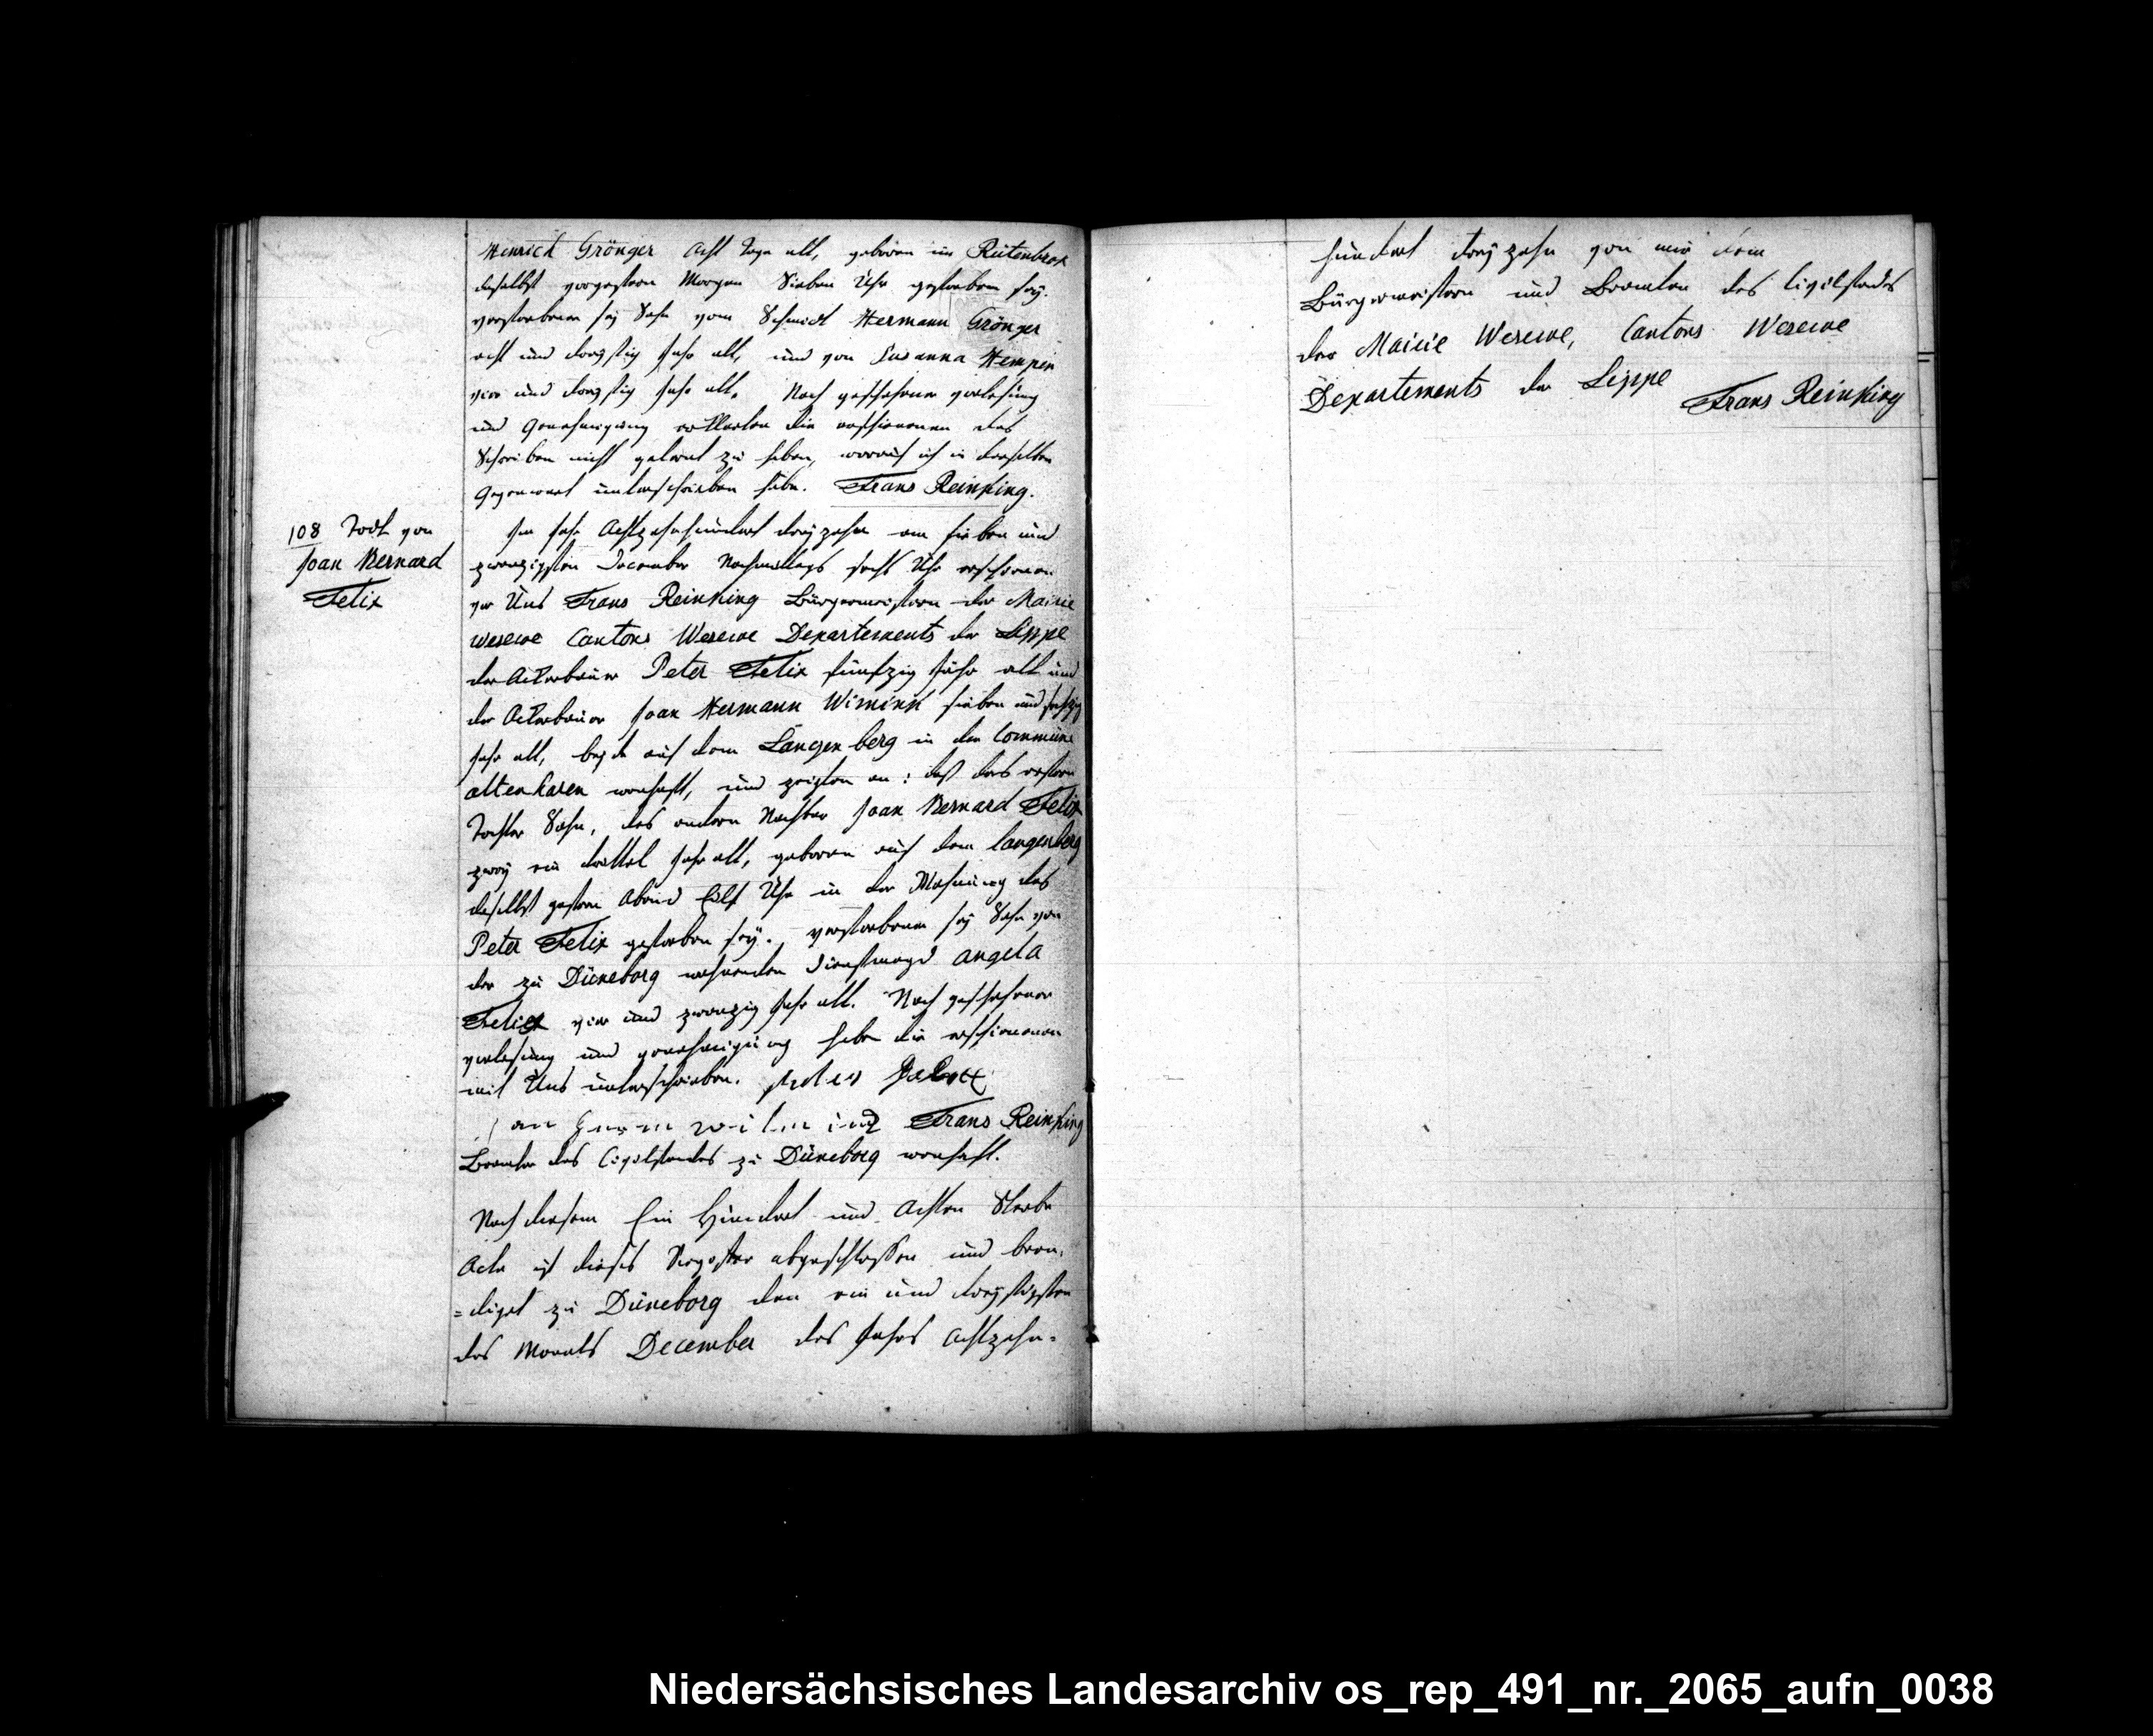 Hinrich Grönger Acht Tage alt, geboren im Rütenbrok
daselbst vorgestern Morgen Sieben Uhr gestorben seÿ.
verstorbener seÿ Sohn vom Schmidt Hermann Grönger
acht und dreyssig Jahr alt, und von Susanna Hempen
vier und dreyssig Jahr alt. Nach geschehener verlesung
und Genehmigung erklärten die erschienenen das
Schreiben nicht gelernt zu haben, worauf ich in derselben
Gegenwart unterschrieben habe. Frans Reinking.
108 Todt von
Joan Bernard
Felix
Im Jahr Achtzehnhundert dreyzehn am sieben und
zwanzigsten December Nachmittags sechs Uhr erschienen
vor Uns Frans Reinking Bürgermeistern der Mairie
Wesewe Cantons Wesewe Departements der Lippe
der Ackerbauer Peter Felix fünfzig Jahr alt und
der Ackerbauer Joan Hermann Wimink sieben und sechzig
Jahr alt, beyde auf dem Langenberg in der Commune
altenharen wonhaft, und zeigten an: daß des erstern
Tochter Sohn, des andern Nachbar Joan Bernard Felix
zwey ein drittel Jahr alt, geboren auf dem langenberg
daselbst gestern Abend Eilf Uhr in der Wohnung des
Peter Felix gestorben seÿ. verstorbener seÿ Sohn von
der zu Düneborg wohnenden Dienstmagd angela
Felix vier und zwanzig Jahr alt. Nach geschehener
verlesung und genehmigung haben die erschienenen
mit Uns unterschrieben.
Frans Reinking
Beamter des Civilstandes zu Düneborg wonhaft.
Nach diesem Ein Hundert und Achten Sterbe
Acte ist dieses Register abgeschlossen und been,
=diget zu Düneborg den ein und dreyssigsten
des Monats December des Jahrs Achtzehn-
hundert dreyzehn von mir dem
Bürgermeistern und Beamten des Civilstandes
der Mairie Wesewe, Cantons Wesewe
Departements der Lippe Frans Reinking
Niedersächsisches Landesarchiv os_rep_491_nr._2065_aufn_0038